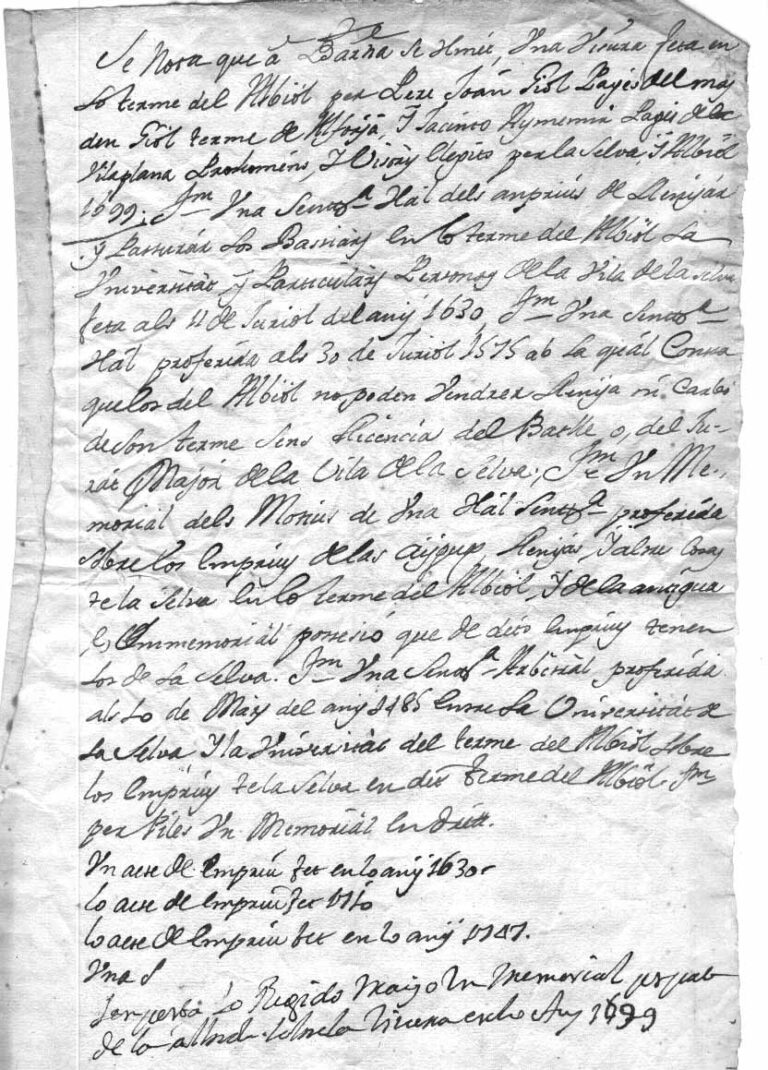 Se Nota que â Barña se tmêt, Una Visura feta en
Lo terme del Albiòl per Pere Joan Giòl Pagès del mas
den Giòl terme de Alforjâ, Y Jacinto Pagès de la
Vilaplana Prohomèns, Y Visors elegits per la Selva, Y Albiòl
1699; Jtm Una Sentª Rál dels anprius de Llenyár
y Pasturár Los Bastiárs en lo terme del Albiòl La
Universitát y Particulárs Personas de la Vila de la Selva
feta als 11 de Juriol del any 1630 Jtm Una Sentª
Rál proferida als 30 de Juriol 1575 ab La qual Consta
que los del Albiòl no poden Vendrer Llenya ni Carbó
de son terme Sens llicencia del Batlle o, del Ju-
rat Majór de la Vila de la Selva; Jtm Un Me-
morial dels Motius de Una Rál Sentª proferida
sobre los Emprius de las aÿguas Llenyas, Y altres Cosas
te la Selva en lo terme del Albiòl, Y de la antigua
è, Immemorial possesió que de dits Emprius tenen
Los de La Selva. Jtm Una Sentª Arbitrál proferida
als 10 de Mars del any 1485 entre La Universitát de
La Selva Y la Universitát del terme del Albiòl sobre
los Emprius te la Selva en dit terme del Albiòl. Jtm
per Piles Un Memoriál en drèt.
Un acte de Empriu fet en lo any 1630
lo acte de Empriu fet 1710
lo acte de Empriu fet en lo any 1747.
Una S
Lo Regido Mayo Un Memorial
de la sobre la Visura en lo Any 1699